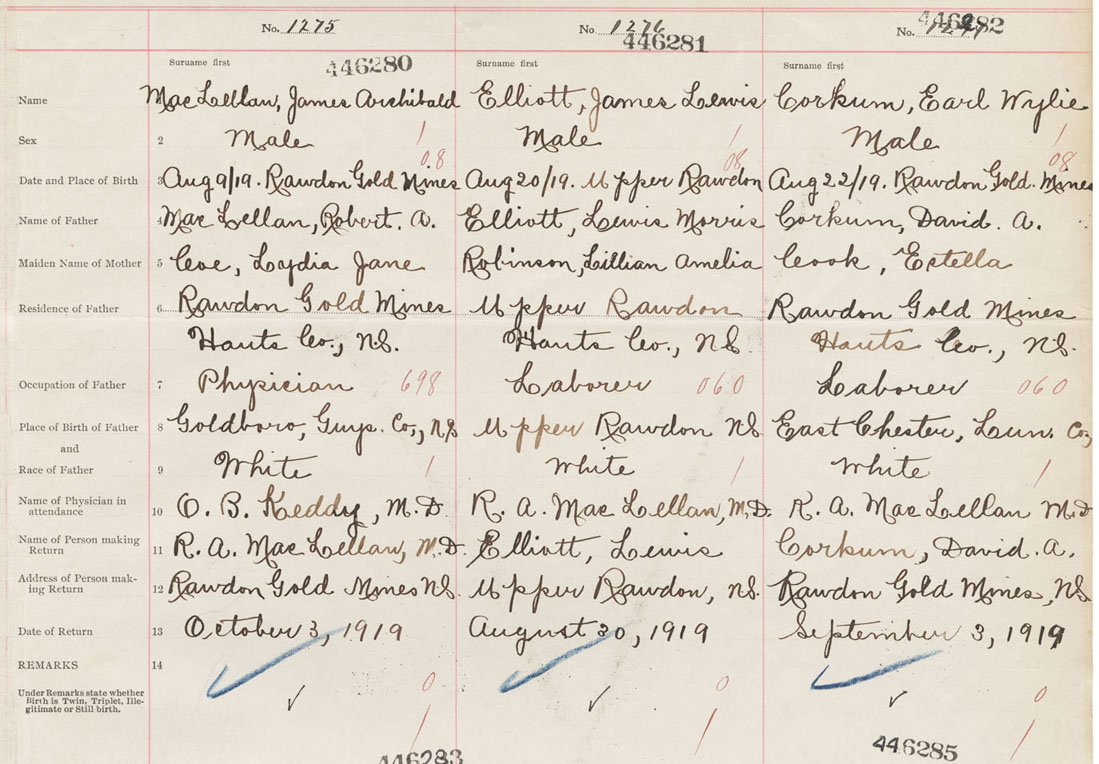 No. 1275 No. 1276 No.
446280 446281 446282
Surname first Surname first Surname first
Name MacLellan, James Archibald Elliott, James Lewis Corkum, Earl Wylie
Sex 2 Male 1 Male 1 Male 1
08 08 08
Date and Place of Birth 3 Aug 9/19. Rawdon Gold Mines Aug 20/19. Upper Rawdon Aug 22/19. Rawdon Gold. Mines
Name of Father 4 MacLellan, Robert. A. Elliott, Lewis Morris Corkum, David. A.
Maiden Name of Mother 5 Coe, Lydia Jane Robinson, Lillian Amelia Cook, Estella
Residence of Father 6 Rawdon Gold Mines Upper Rawdon Rawdon Gold Mines
Hants Co., N.S. Hants Co., N.S. Hants Co., N.S.
Occupation of Father 7 Physician 698 Laborer 060 Laborer 060
Place of Birth of Father 8 Goldboro, Guys. Co., N.S Upper Rawdon NS. East Chester, Lun. Co,
and
Race of Father 9 White 1 White 1 White 1
Name of Physician in
attendance 10 O. B. Keddy, M.D. R. A. MacLellan, M.D. R. A. MacLellan M.D
Name of Person making
Return 11 R. A. MacLellan, M.D. Elliott, Lewis Corkum, David. A.
Address of Person mak-
ing Return 12 Rawdon Gold Mines NS. Upper Rawdon, NS. Rawdon Gold Mines, NS
Date of Return 13 October 3, 1919 August 30, 1919 September 3, 1919
REMARKS 14
Under Remarks state whether
Birth is Twin, Triplet, Ille-
gitimate or Still birth.
0 0 0
1 1 1
446283 446285